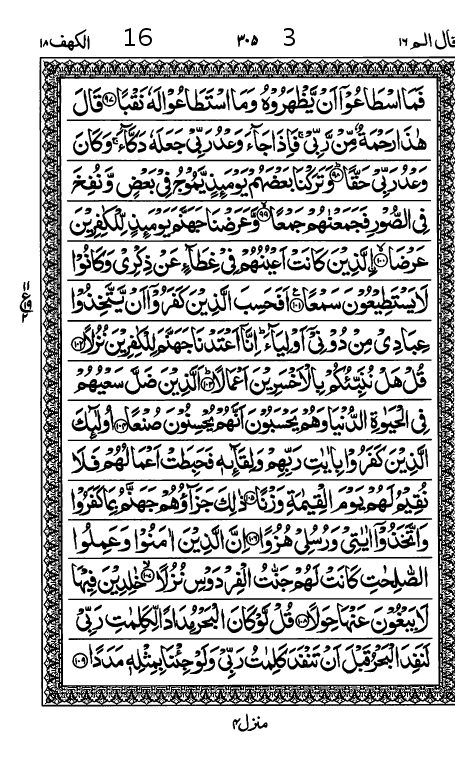 قال الم ۱۶ 3 ۳۰۵ 16 الکهف ۱۸
فَمَا اسْطَاعُوْۤا اَنْ یَّظْهَرُوْهُ وَمَا اسْتَطَاعُوْا لَهٗ نَقْبًا ﴿۹۷﴾ قَالَ
هٰذَا رَحْمَةٌ مِّنْ رَّبِّیْ ۚ فَاِذَا جَآءَ وَعْدُ رَبِّیْ جَعَلَهٗ دَكَّآءَ ۚ وَكَانَ
وَعْدُ رَبِّیْ حَقًّا ﴿۹۸﴾ وَتَرَكْنَا بَعْضَهُمْ یَوْمَىِٕذٍ یَّمُوْجُ فِیْ بَعْضٍ وَّنُفِخَ
فِی الصُّوْرِ فَجَمَعْنٰهُمْ جَمْعًا ﴿۹۹﴾ وَّعَرَضْنَا جَهَنَّمَ یَوْمَىِٕذٍ لِّلْكٰفِرِیْنَ
عَرْضَا ﴿۱۰۰﴾ الَّذِیْنَ كَانَتْ اَعْیُنُهُمْ فِیْ غِطَآءٍ عَنْ ذِكْرِیْ وَكَانُوْا
لَا یَسْتَطِیْعُوْنَ سَمْعًا ﴿۱۰۱﴾ اَفَحَسِبَ الَّذِیْنَ كَفَرُوْۤا اَنْ یَّتَّخِذُوْا
عِبَادِیْ مِنْ دُوْنِیْۤ اَوْلِیَآءَ ؕ اِنَّاۤ اَعْتَدْنَا جَهَنَّمَ لِلْكٰفِرِیْنَ نُزُلًا ﴿۱۰۲﴾
قُلْ هَلْ نُنَبِّئُكُمْ بِالْاَخْسَرِیْنَ اَعْمَالًا ﴿۱۰۳﴾ اَلَّذِیْنَ ضَلَّ سَعْیُهُمْ
فِی الْحَیٰوةِ الدُّنْیَا وَهُمْ یَحْسَبُوْنَ اَنَّهُمْ یُحْسِنُوْنَ صُنْعًا ﴿۱۰۴﴾ اُولٰٓىِٕكَ
الَّذِیْنَ كَفَرُوْا بِاٰیٰتِ رَبِّهِمْ وَلِقَآىِٕهٖ فَحَبِطَتْ اَعْمَالُهُمْ فَلَا
نُقِیْمُ لَهُمْ یَوْمَ الْقِیٰمَةِ وَزْنًا ﴿۱۰۵﴾ ذٰلِكَ جَزَآؤُهُمْ جَهَنَّمُ بِمَا كَفَرُوْا
وَاتَّخَذُوْۤا اٰیٰتِیْ وَرُسُلِیْ هُزُوًا ﴿۱۰۶﴾ اِنَّ الَّذِیْنَ اٰمَنُوْا وَعَمِلُوا
الصّٰلِحٰتِ كَانَتْ لَهُمْ جَنّٰتُ الْفِرْدَوْسِ نُزُلًا ﴿۱۰۷﴾ خٰلِدِیْنَ فِیْهَا
لَا یَبْغُوْنَ عَنْهَا حِوَلًا ﴿۱۰۸﴾ قُلْ لَّوْ كَانَ الْبَحْرُ مِدَادًا لِّكَلِمٰتِ رَبِّیْ
لَنَفِدَ الْبَحْرُ قَبْلَ اَنْ تَنْفَدَ كَلِمٰتُ رَبِّیْ وَلَوْ جِئْنَا بِمِثْلِهٖ مَدَدًا ﴿۱۰۹﴾
منزل ۴